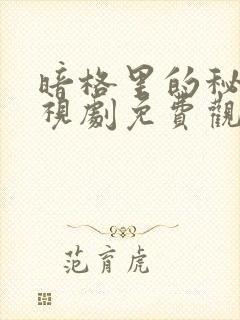 暗格里的秘
視劇免費觀
范育虎